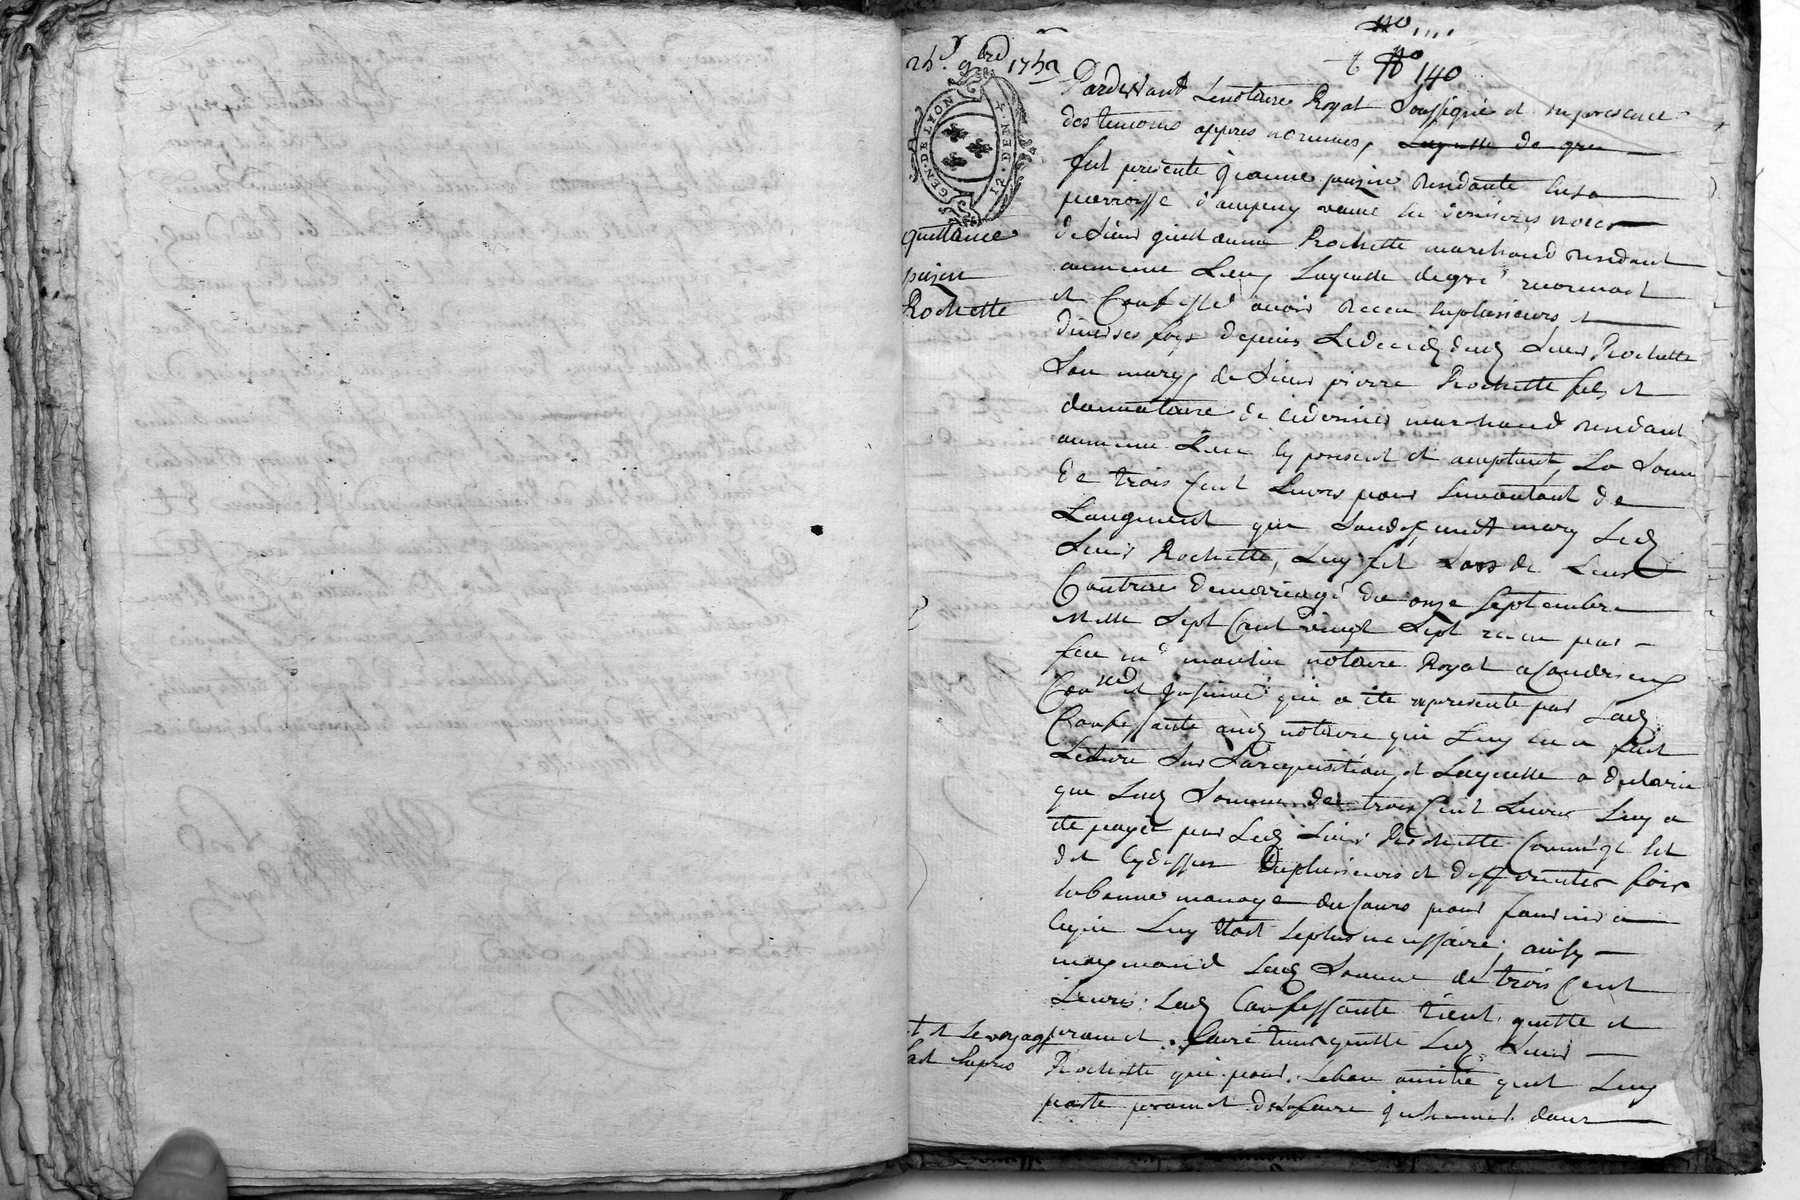 No 140
GEN. DE LYON
quittance
puzin
Rochette
Pardevant Lenotaire Royal Soussigné et en presence
des temoins appres nommes, Laquelle de gre
fut presente jeanne puzin residante en sa
parroisse d'ampuy veuve en dernieres noces
de Sieur guillaume Rochette marchand residant
au meme Lieu Laquelle de gré reconnoit
et Confesse avoir Receu en plusieurs et
diverses fois depuis Ledeces dud Sieur Rochette
Son mary, de Sieur pierre Rochette fils et
donnataire de cedernier marchand residant
au meme Lieu Cy present et acceptant, La Somme
De trois Cent Livres pour Lemontant de
Laugment que Sondefunt mary Led
Sieur Rochette, Luy fit Lors de Leur
Contrat demariage du onze Septembre
Mille Sept Cent vingt Sept recu par
feu me notaire Royal a Condrieu
Con.lé et Insinué qui a ete representé par Lad
Confessante aud notaire qui Luy en a fait
Lecture Sur Sa requisition, et Laquelle a declaré
que Lad Somme de trois Cent Livres Luy a
ete payée par Led Sieur Rochette Comme il est
dit Cydessus En plusieurs et differentes fois
en bonne monoye du Cours pour fournir a
Ce qui Luy etoit Leplus necessaire, ainsy
moyennant Lad Somme de trois Cent
Livres Lad Confessante tient quitte et
promet faire tenir quitte Led Sieur
Rochette qui pour Le bon amitié quil Luy
porte promet de